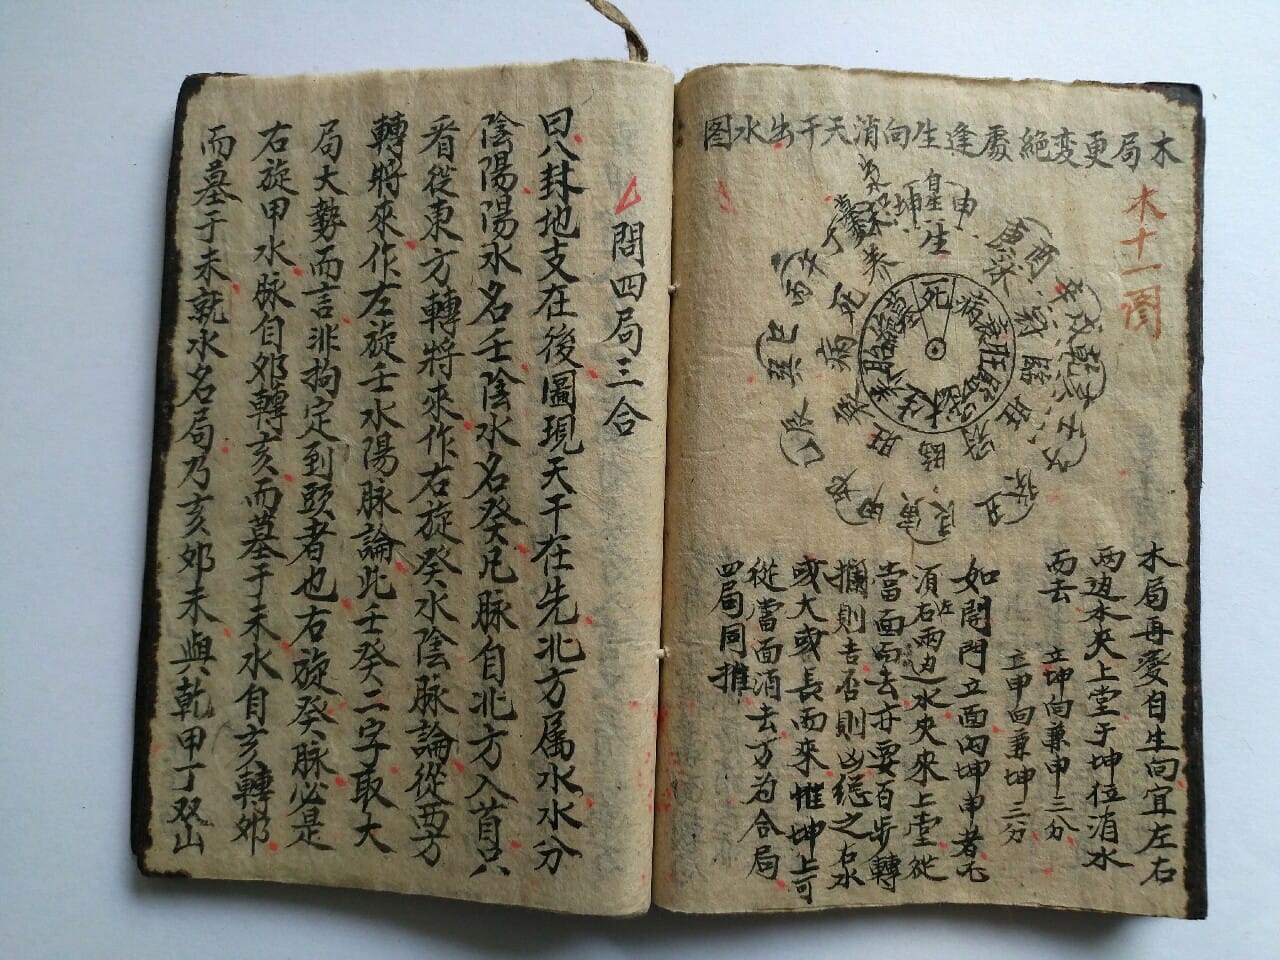 木局更變絕處逢生向消天干出水图
木十一圖
木局再變自生向宜左右
两边水夾上堂于坤位消水
而去
立坤向兼申三分
立申向兼坤三分
如開門立面向坤申者
須右左兩边水夾來上堂從
當面而去亦要百步轉
攔則吉否則凶總之右水
或大或長而來惟坤上可
從當面消去方为合局
四局同推
申
自生
坤
生
養
死
病
旺
臨
庚
酉
辛
戌
乾
亥
壬
丑
艮
寅
甲
巳
巽
辰
死
病
墓
胎
問四局三合
曰八封地支在後圖現天干在先北方属水水分
陰陽陽水名壬陰水名癸凡脉自北方入首只
看從東方轉將來作右旋癸水陰脉論從西方
轉將來作左旋壬水陽脉論此壬癸二字取大
局大勢而言非拘定到頭者也右旋癸脉必是
右旋甲水脉自卯轉亥而墓于未水自亥轉卯
而墓于未就水名局乃亥卯未與乾甲丁双山